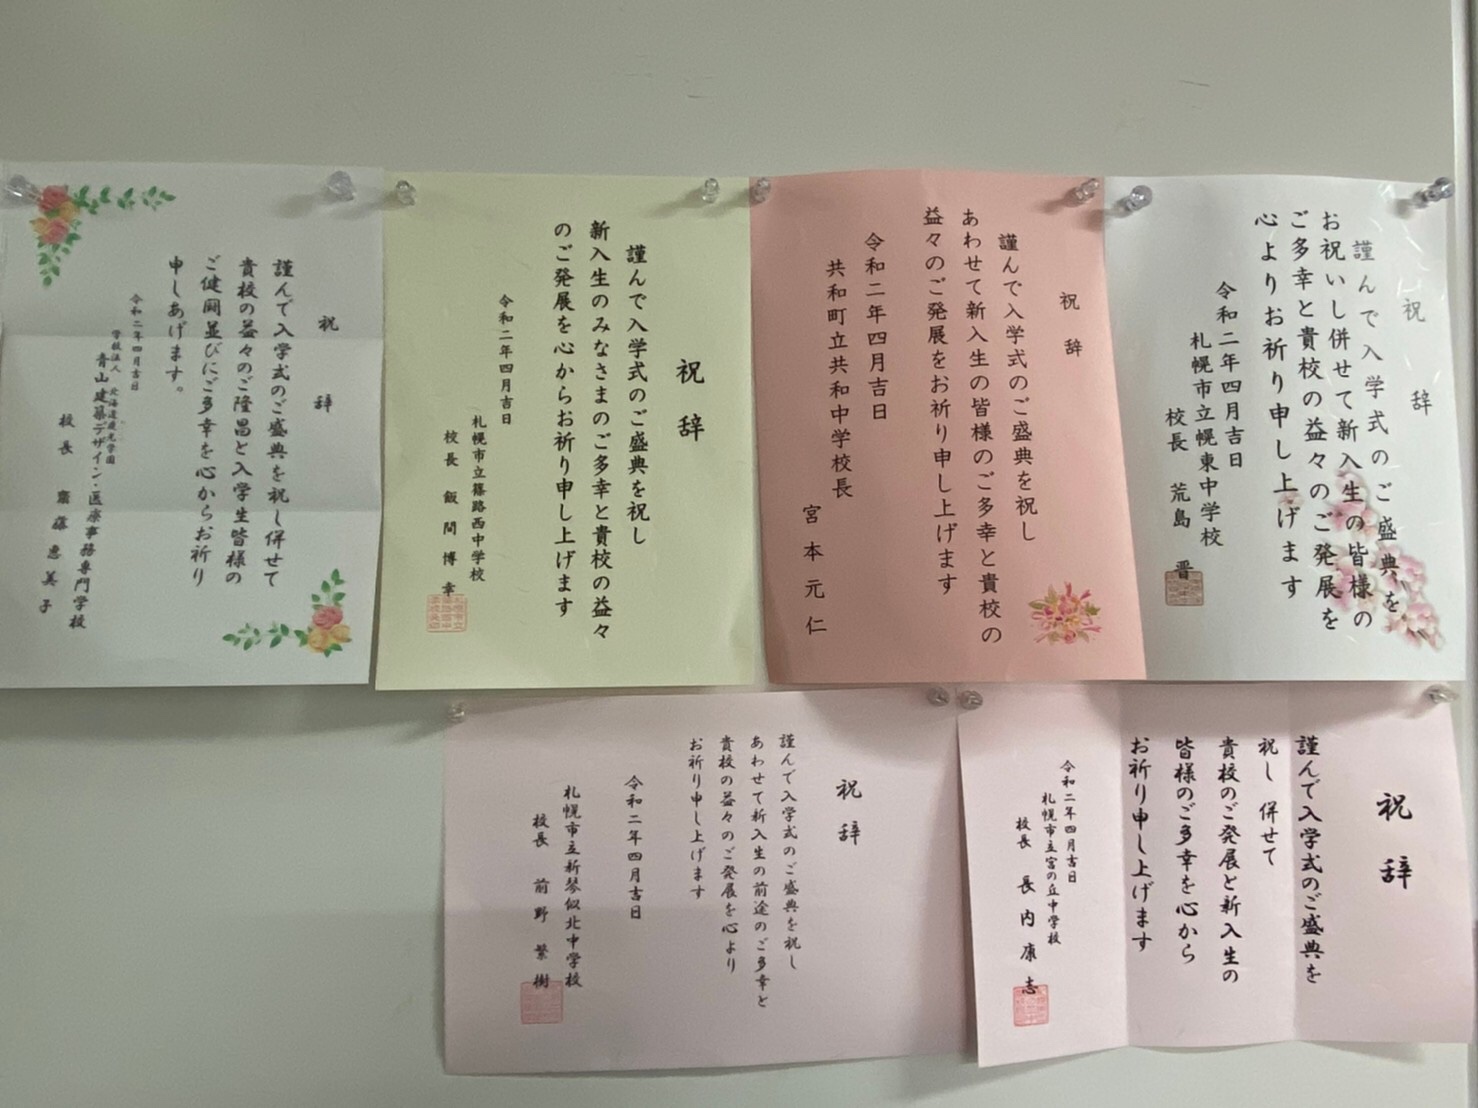 祝辞
謹んで入学式のご盛典を
お祝いし併せて新入生の皆様の
ご多幸と貴校の益々のご発展を
心よりお祈り申し上げます
令和二年四月吉日
札幌市立幌東中学校
校長 荒島 晋
祝辞
謹んで入学式のご盛典を祝し
あわせて新入生の皆様のご多幸と貴校の
益々のご発展をお祈り申し上げます
令和二年四月吉日
共和町立共和中学校長
宮本元仁
祝辞
謹んで入学式のご盛典を祝し
新入生のみなさまのご多幸と貴校の益々
のご発展を心からお祈り申し上げます
令和二年四月吉日
札幌市立篠路西中学校
校長 飯間博幸
祝辞
謹んで入学式のご盛典を祝し併せて
貴校の益々のご隆昌と入学生皆様の
ご健闘並びにご多幸を心からお祈り
申しあげます。
令和二年四月吉日
学校法人 北海道龍光学園
青山建築デザイン・医療事務専門学校
校長 齋藤恵美子
祝辞
謹んで入学式のご盛典を
祝し 併せて
貴校のご発展と新入生の
皆様のご多幸を心から
お祈り申し上げます
令和二年四月吉日
札幌市立宮の丘中学校
校長 長内康志
祝辞
謹んで入学式のご盛典を祝し
あわせて新入生の前途のご多幸と
貴校の益々のご発展を心より
お祈り申し上げます
令和二年四月吉日
札幌市立新琴似北中学校
校長 前野繁樹